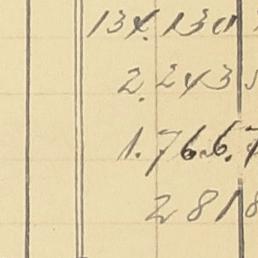 134.130
2.243
1.766.
281